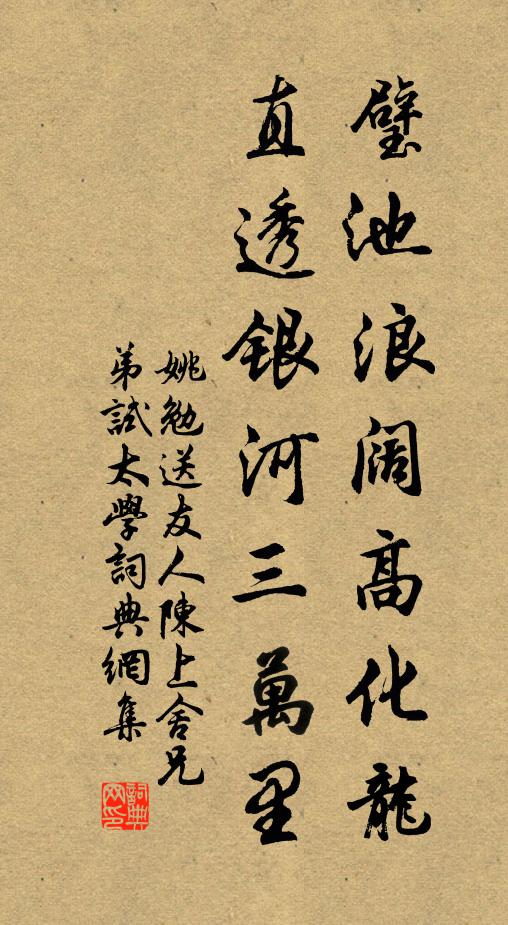 璧池浪阔高化龍
直透銀河三萬里
姚勉送友人陳上舍兄
弟試太學詞典網集
詞典網印